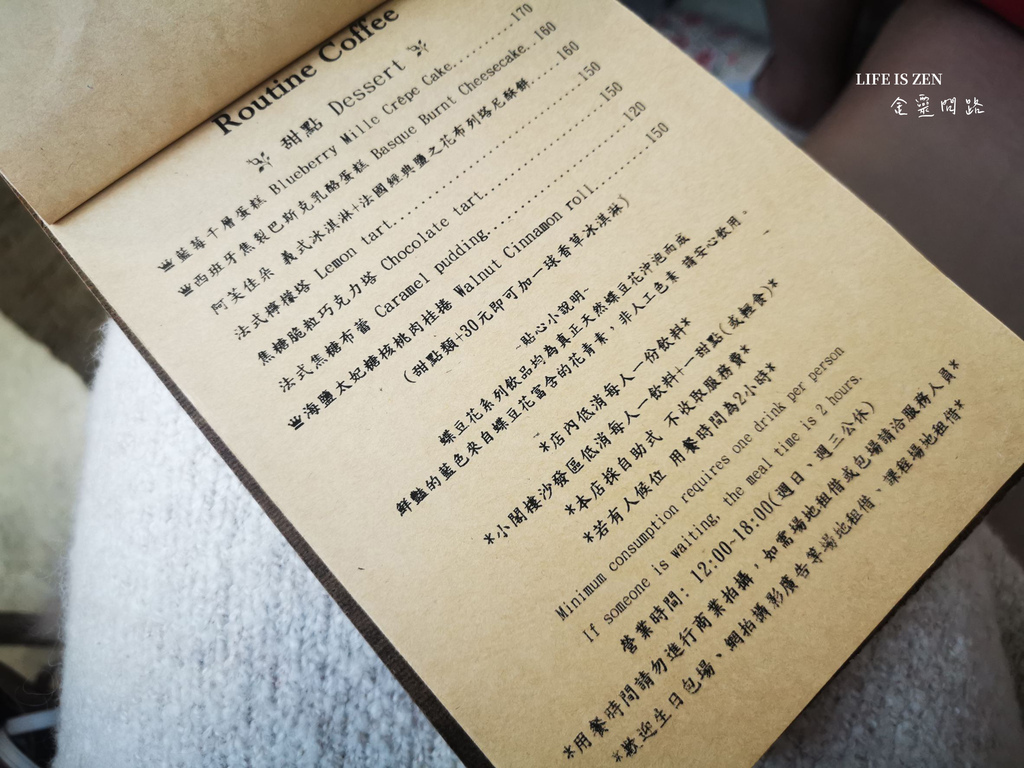 Routine Coffee
甜點 Dessert
藍莓千層蛋糕 Blueberry Mille Crêpe Cake..........170
西班牙焦裂巴斯克乳酪蛋糕 Basque Burnt Cheesecake..160
阿芙佳朵 義式冰淇淋+法國經典鹽之花布列塔尼酥餅......160
法式檸檬塔 Lemon tart..............................150
焦糖脆粒巧克力塔 Chocolate tart....................150
法式焦糖布蕾 Caramel pudding.......................120
海鹽太妃糖核桃肉桂捲 Walnut Cinnamon roll.........150
(甜點類+30元即可加一球香草冰淇淋)
~貼心小說明~
蝶豆花系列飲品均為真正天然蝶豆花沖泡而成
鮮豔的藍色來自蝶豆花富含的花青素，非人工色素 請安心飲用。
*店內低消每人一份飲料*
*小閣樓沙發區低消每人一飲料+一甜點(或輕食)*
*本店採自助式 不收取服務費*
*若有人候位 用餐時間為2小時*
Minimum consumption requires one drink per person
If someone is waiting, the meal time is 2 hours.
營業時間: 12:00~18:00(週日、週三公休)
*用餐時間請勿進行商業拍攝，如需場地租借或包場請洽服務人員*
*歡迎生日包場、網拍攝影廣告等場地租借、課程場地租借*
LIFE IS ZEN
金靈問路